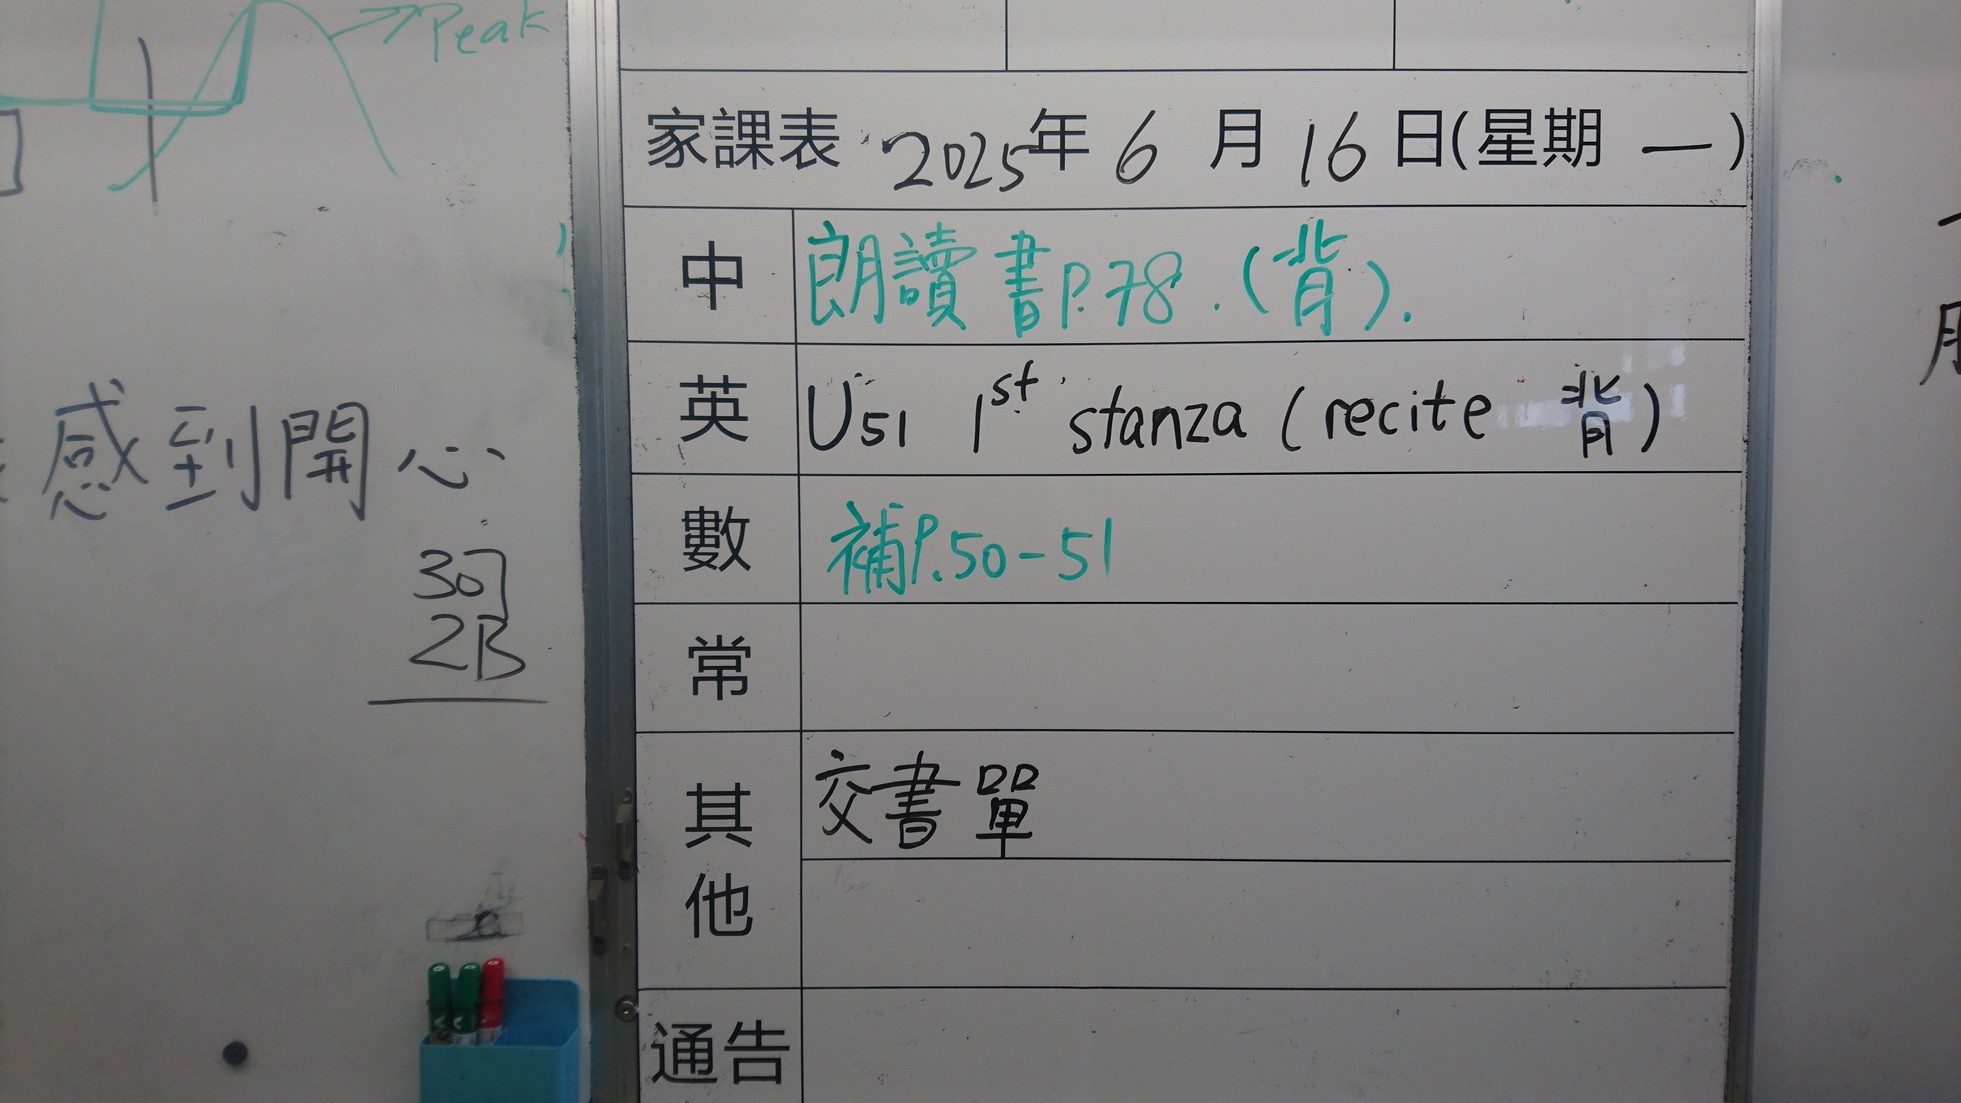 Peak
感到開心
30
2B
家課表 2025年 6 月 16 日(星期 一)
中 朗讀書P.78.(背).
英 U51 1st stanza (recite 背)
數 補P.50-51
常
其他 交書單
通告